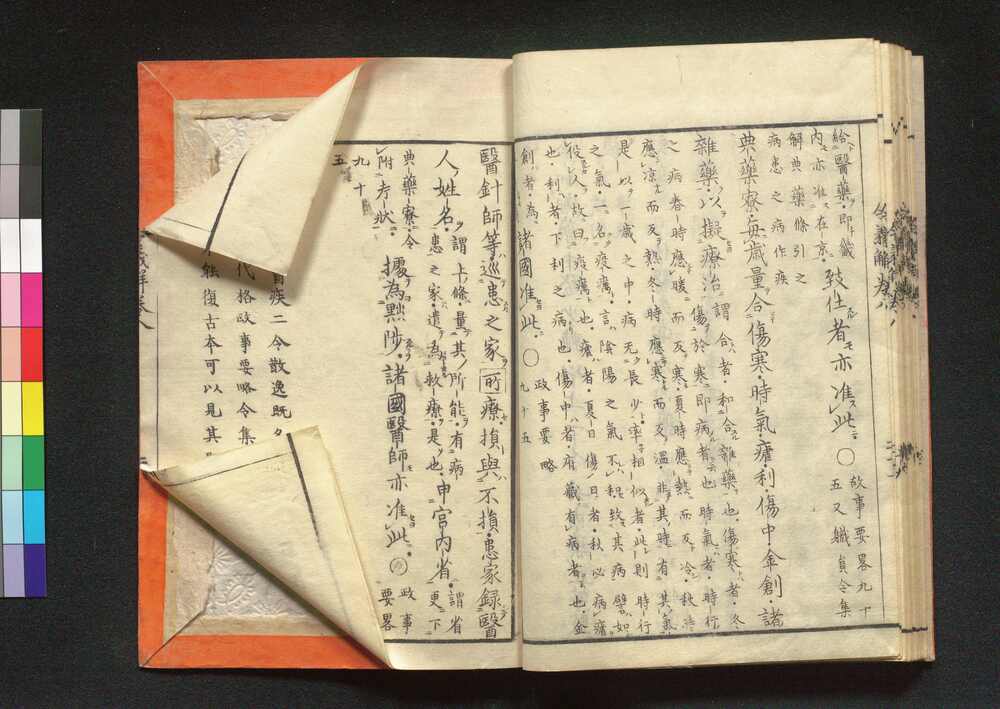 給醫藥即餼
内亦准在京
致仕者亦准此○
故事要畧九十
五又職員令集
解典藥條引之
病患之病作疾
典藥寮毎歲量合傷寒時氣瘧利傷中金創諸
雜藥以擬療治
謂合者和合雜藥也傷寒者冬
傷於寒即病者也時氣者時行
之病春時應暖而反寒夏時應熱而反冷秋時
應凉而反熱冬時應寒而反溫非其時有其氣
是以一歲之中病无長少率相似者此則時行
之氣一名疫癘言陰陽之氣不和致其病譬如
役人故曰疫癘也瘧者夏日傷日者秋必病瘧
也利者下利之病也傷中者府藏有病者也金
創者為諸國准此○
政事要略
九十五
醫針師等巡患之家所療損與不損患家録醫
人姓名
謂上條量其所能有病
患之家遣為救療是也
申官内省
謂省
更下
典藥寮令
附考狀
據為黜陟諸國醫師亦准此○
政事
要畧
九十
五
疾二令散逸既
代格政事要略令集
復古本可以見其